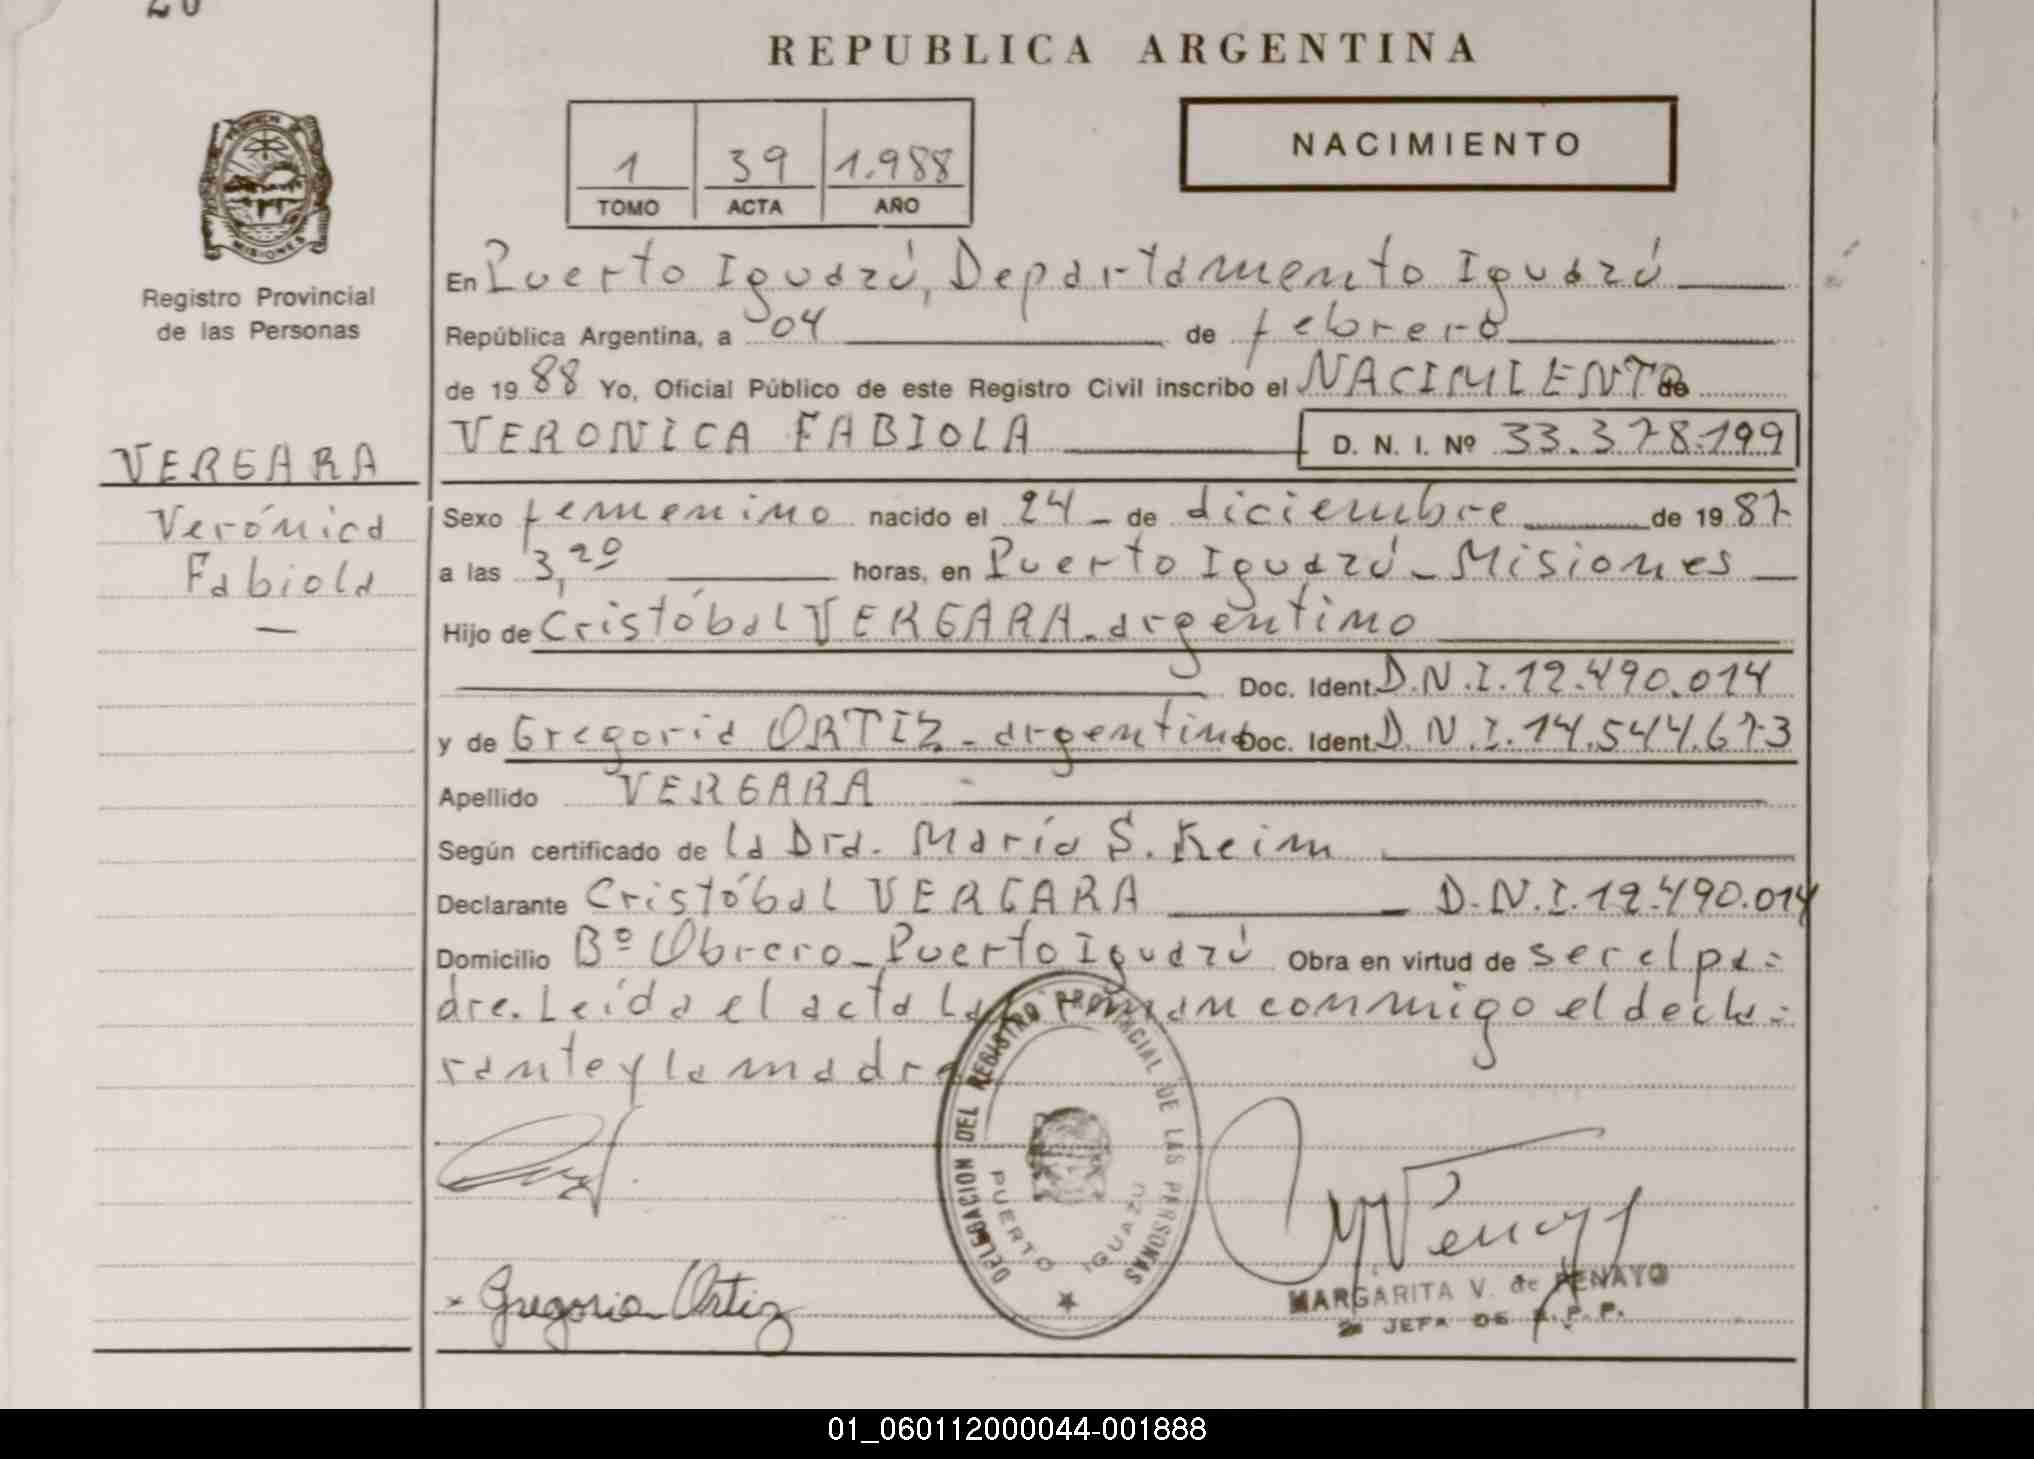 20
REPUBLICA ARGENTINA
1 39 1.988
TOMO ACTA AÑO
NACIMIENTO
PROVINCIA DE MISIONES
Registro Provincial
de las Personas
En Puerto Iguazú, Departamento Iguazú
República Argentina, a 04 de febrero
de 1988 Yo, Oficial Público de este Registro Civil inscribo el NACIMIENTO de
VERONICA FABIOLA D. N. I. Nº 33.378.199
VERGARA
Verónica
Fabiola
Sexo femenino nacido el 24 de diciembre de 1987
a las 3,20 horas, en Puerto Iguazú - Misiones
Hijo de Cristóbal VERGARA - argentino
Doc. Ident. D.N.I. 12.490.014
y de Gregoria ORTIZ - argentina Doc. Ident. D.N.I. 14.544.673
Apellido VERGARA
Según certificado de la Dra. María S. Keim
Declarante Cristóbal VERGARA D.N.I. 12.490.014
Domicilio Bº Obrero - Puerto Iguazú Obra en virtud de ser el pa=
dre. Leída el acta la firman conmigo el decla=
rante y la madre
DELEGACION DEL REGISTRO PROVINCIAL DE LAS PERSONAS
PUERTO IGUAZU
x Gregoria Ortiz
MARGARITA V. de PENAYO
2a JEFA DE R.P.P.
01_060112000044-001888